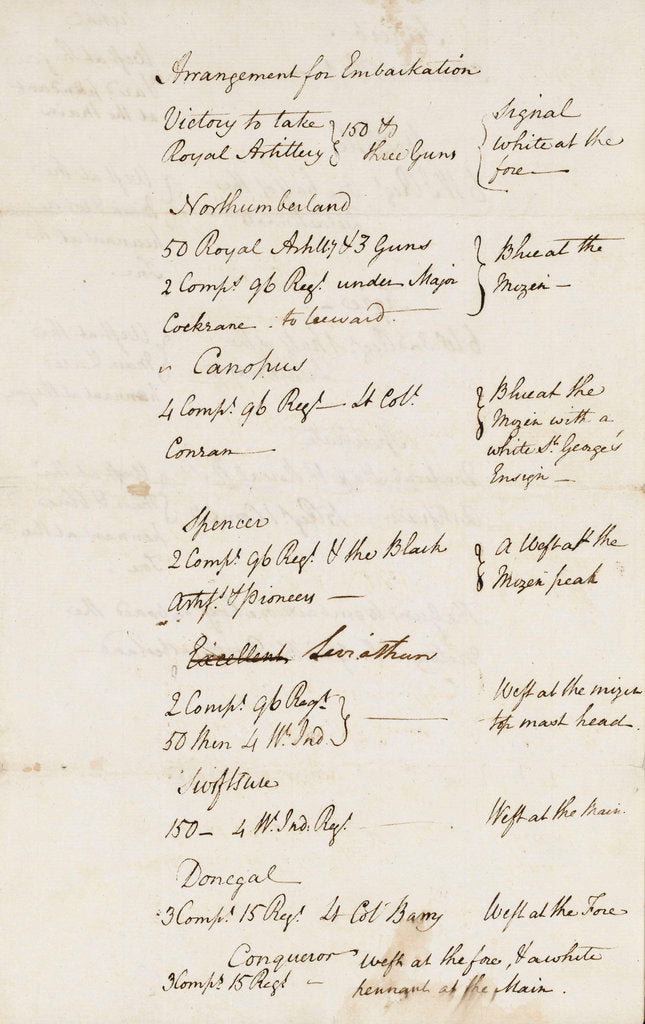 Arrangement for Embarkation
Victory to take } 150 &
Royal Artillery } three Guns
{ Signal
white at the
fore —
Northumberland
50 Royal Artilly & 3 Guns
2 Comps. 96 Regt. under Major
Cockrane . to leeward .
} Blue at the
Mizen —
Canopus
4 Comps. 96 Regt — Lt Col.
Conran —
} Blue at the
Mizen with a
white St. George's
Ensign —
Spencer
2 Comps. 96 Regt. & the Black
Artifs. & Pioneers —
} A Weft at the
Mizen peak
Excellent Leviathan
2 Comps. 96 Regt.
50 Men 4 W. Ind } —
Weft at the mizen
top mast head.
Swiftsure
150 — 4 W. Ind: Regt. — Weft at the Main.
Donegal
3 Comps. 15 Regt. Lt Col Barry Weft at the Fore
Conqueror Weft at the fore, & a white
3 Comps. 15 Regt — pennant at the Main .